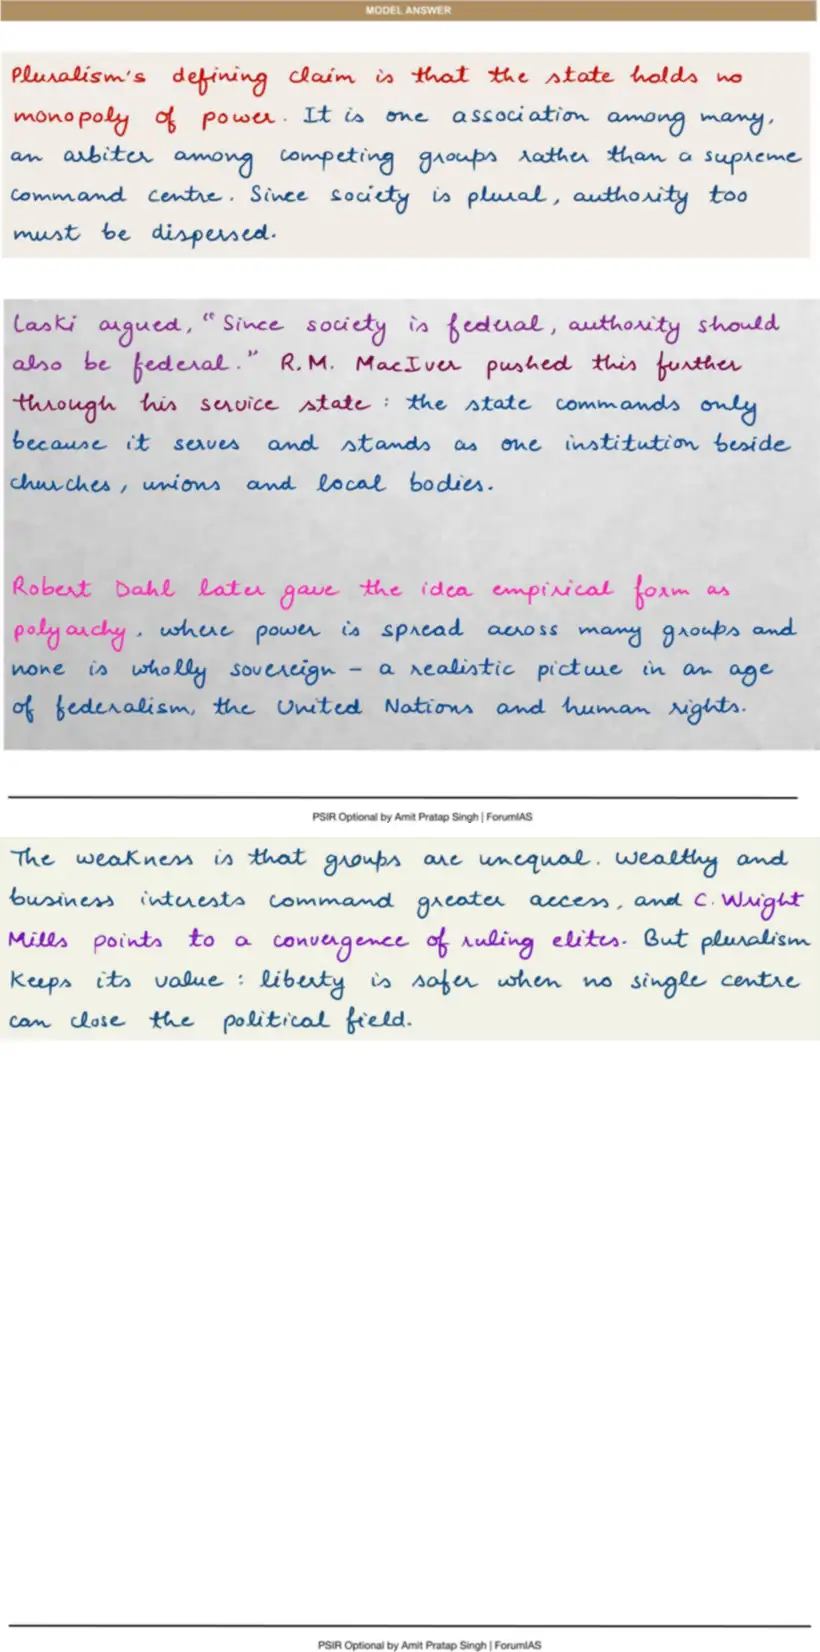 MODEL ANSWER
Pluralism's defining claim is that the state holds no
monopoly of power. It is one association among many,
an arbiter among competing groups rather than a supreme
command centre. Since society is plural, authority too
must be dispersed.
Laski argued, "Since society is federal, authority should
also be federal." R.M. MacIver pushed this further
through his service state : the state commands only
because it serves and stands as one institution beside
churches, unions and local bodies.
Robert Dahl later gave the idea empirical form as
polyarchy, where power is spread across many groups and
none is wholly sovereign – a realistic picture in an age
of federalism, the United Nations and human rights.
PSIR Optional by Amit Pratap Singh | ForumIAS
The weakness is that groups are unequal. Wealthy and
business interests command greater access, and C. Wright
Mills points to a convergence of ruling elites. But pluralism
keeps its value : liberty is safer when no single centre
can close the political field.
PSIR Optional by Amit Pratap Singh | ForumIAS